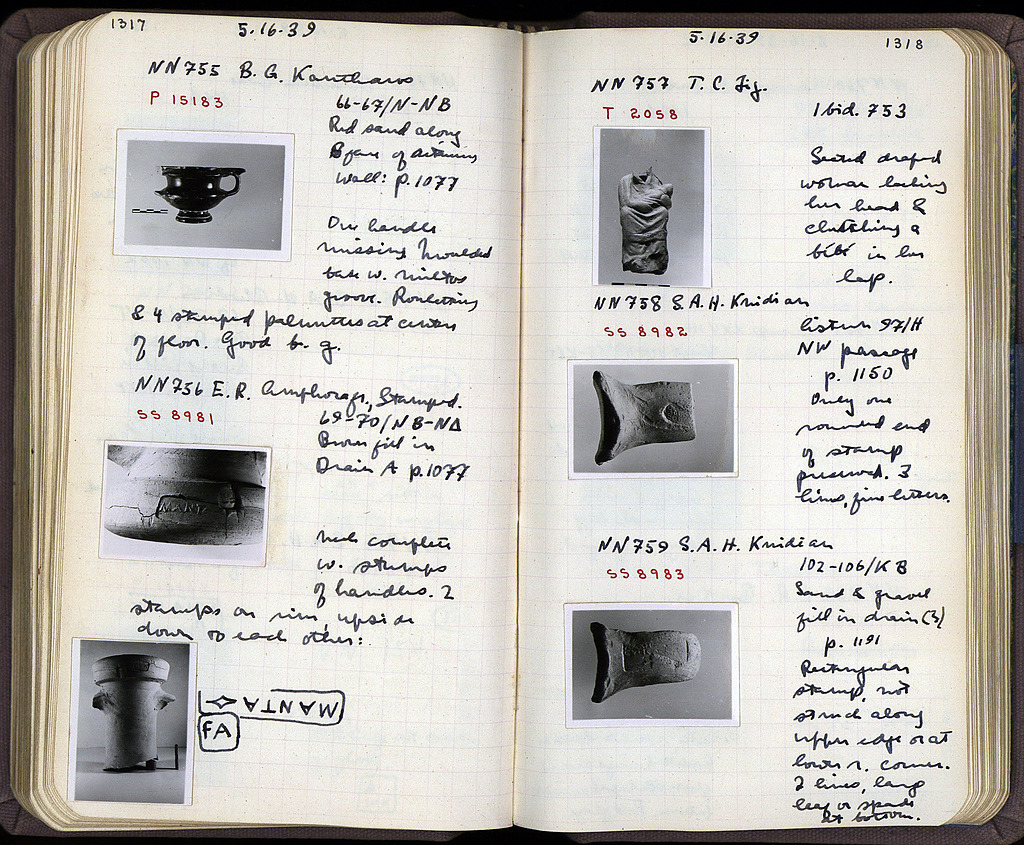 1317
5·16·39
NN755 B. G. Kantharos
P 15183
66-67/N-NB
Red sand along
B face of retaining
Wall: p.1077
One handle
missing. Moulded
base w. miltos
groove. Rouletting
& 4 stamped palmettes at center
of floor. Good b. g.
NN756 E. R. Amphora fr., Stamped.
SS 8981
69-70/NB-NΔ
Brown fill in
Drain A p.1077
MANT
Neck complete
w. stumps
of handles. 2
stamps on rim, upside
down to each other:
MANTA
FA
5·16·39
1318
NN757 T. C. Fig.
T 2058
Ibid. 753
Seated draped
woman lacking
her head &
clutching a
belt in her
lap.
NN758 S.A.H. Knidian
SS 8982
Cistern 97/H
NW passage
p. 1150
Only one
rounded end
of stamp
preserved. 3
lines, fine letters.
NN759 S.A.H. Knidian
SS 8983
102-106/KB
Sand & gravel
fill in drain (3)
p. 1191
Rectangular
stamp, not
struck along
upper edge or at
lower r. corner.
2 lines, large
leaf or spade
at bottom.